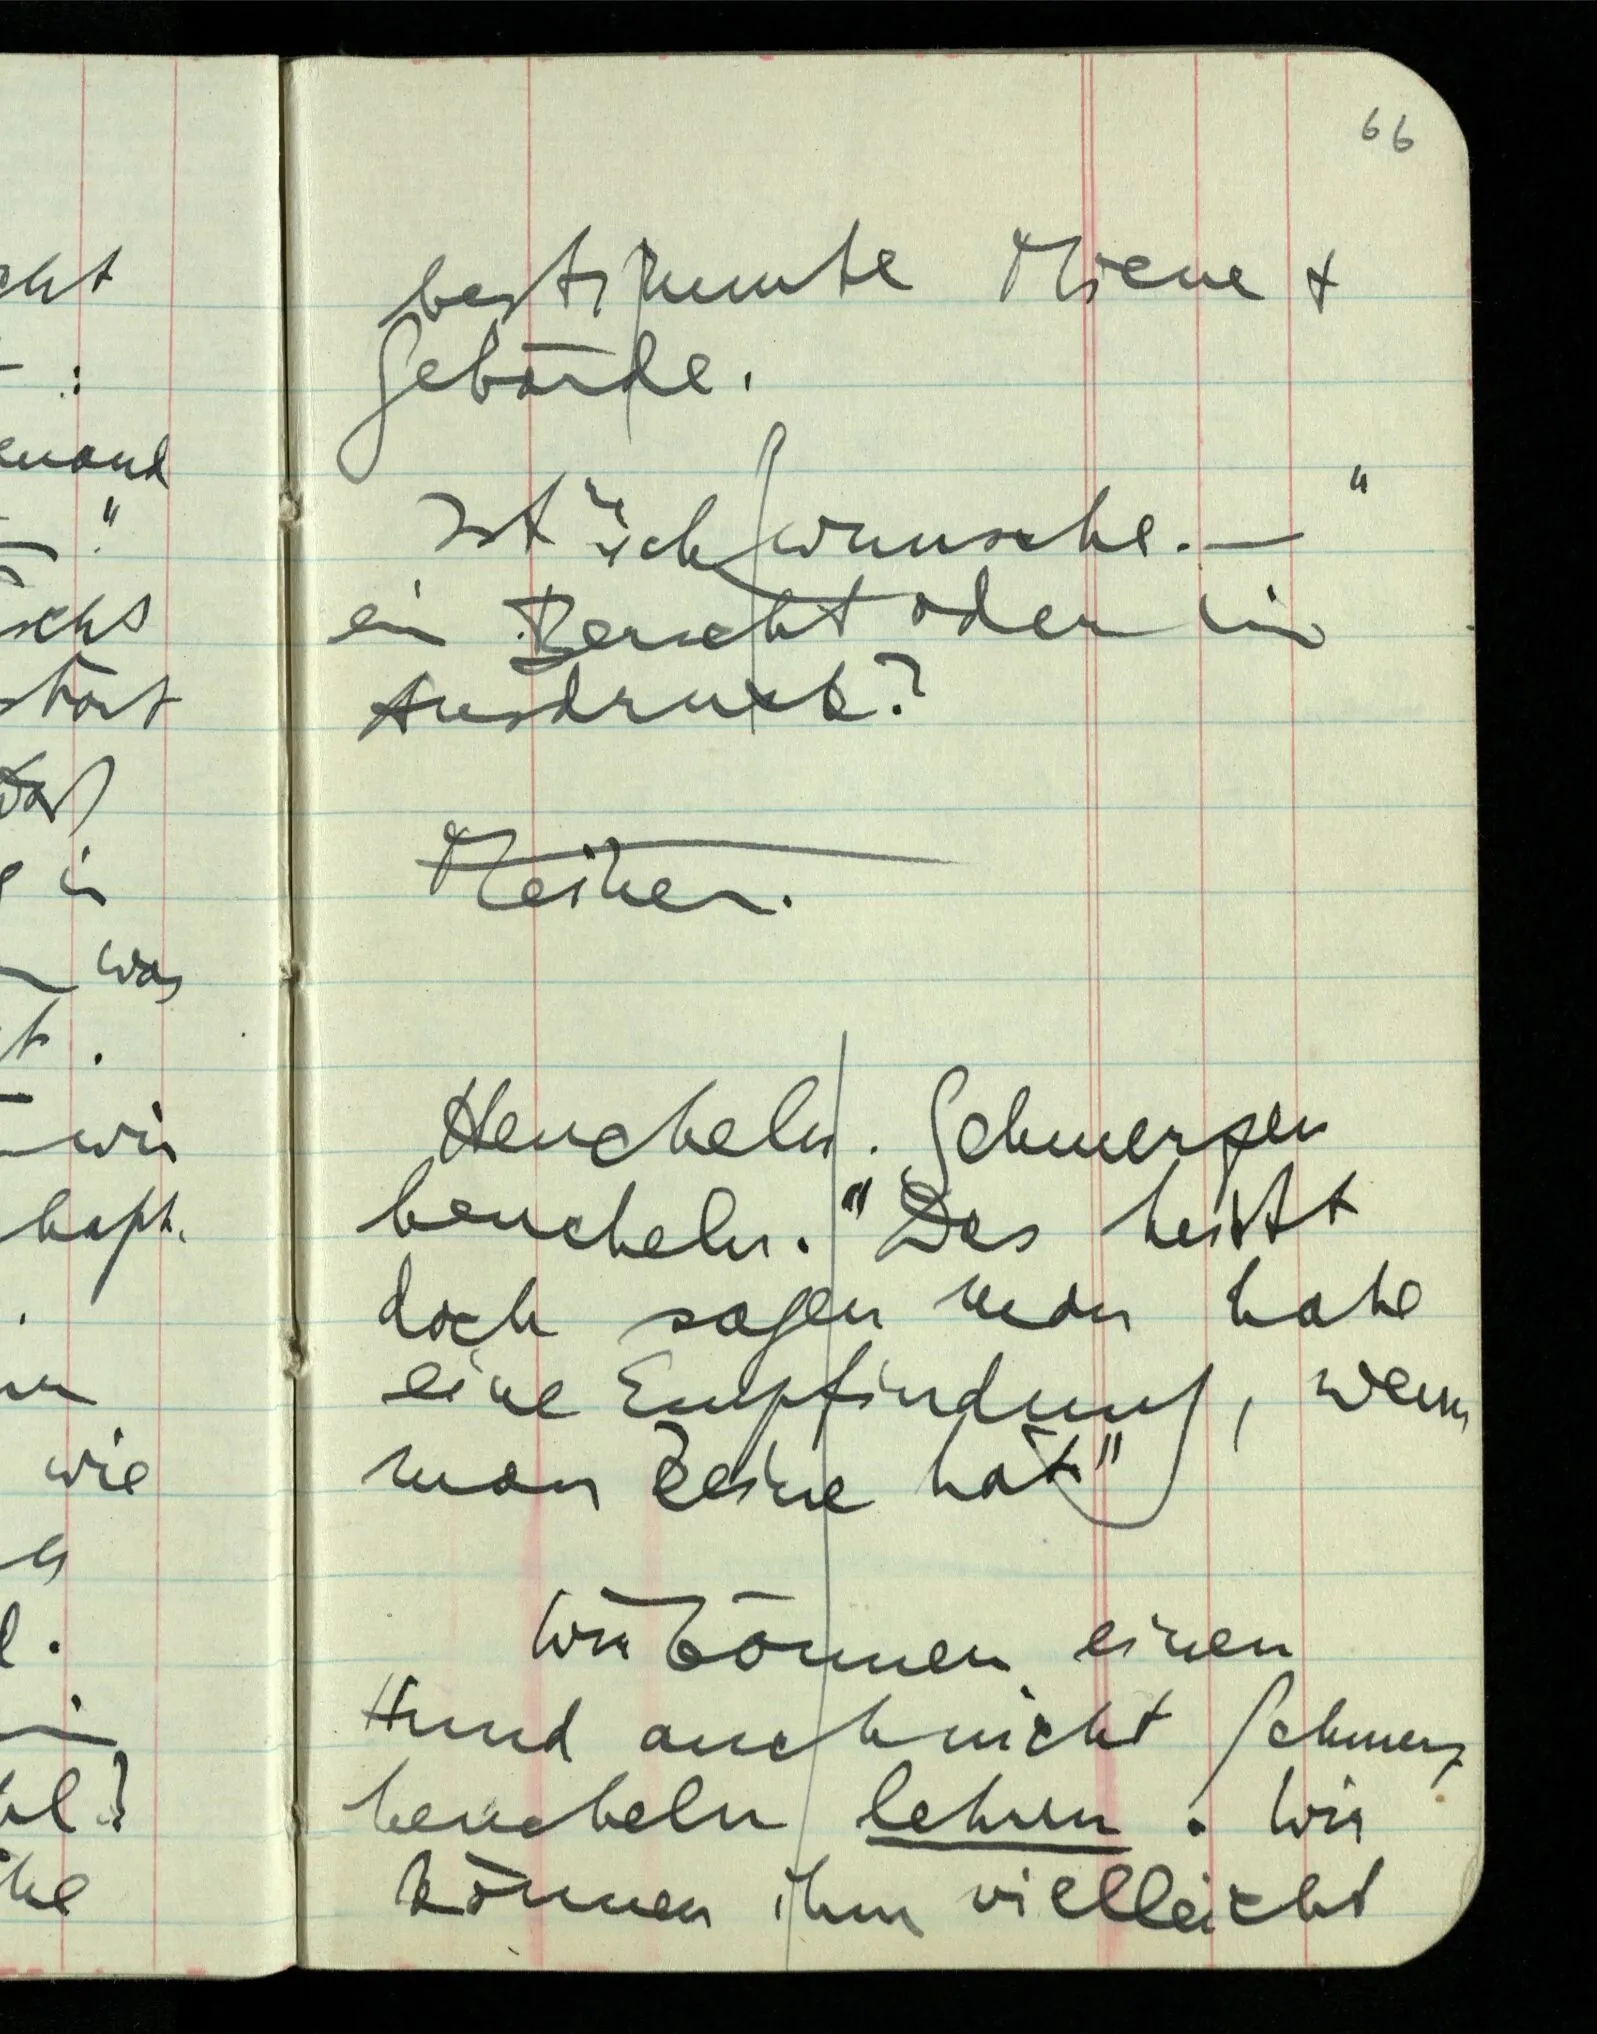 66
bestimmte Miene +
Gebärde.
Ist "ich wünsche. — "
ein Bericht oder ein
Ausdruck?
Meinen.
Heucheln. Schmerzen
heucheln. "Das heißt
doch sagen man habe
eine Empfindung, wenn
man keine hat"
Wir können einen
Hund auch nicht Schmerz
heucheln lehren. Wir
können ihm vielleicht
cht
:
was
wir
haft.
wie